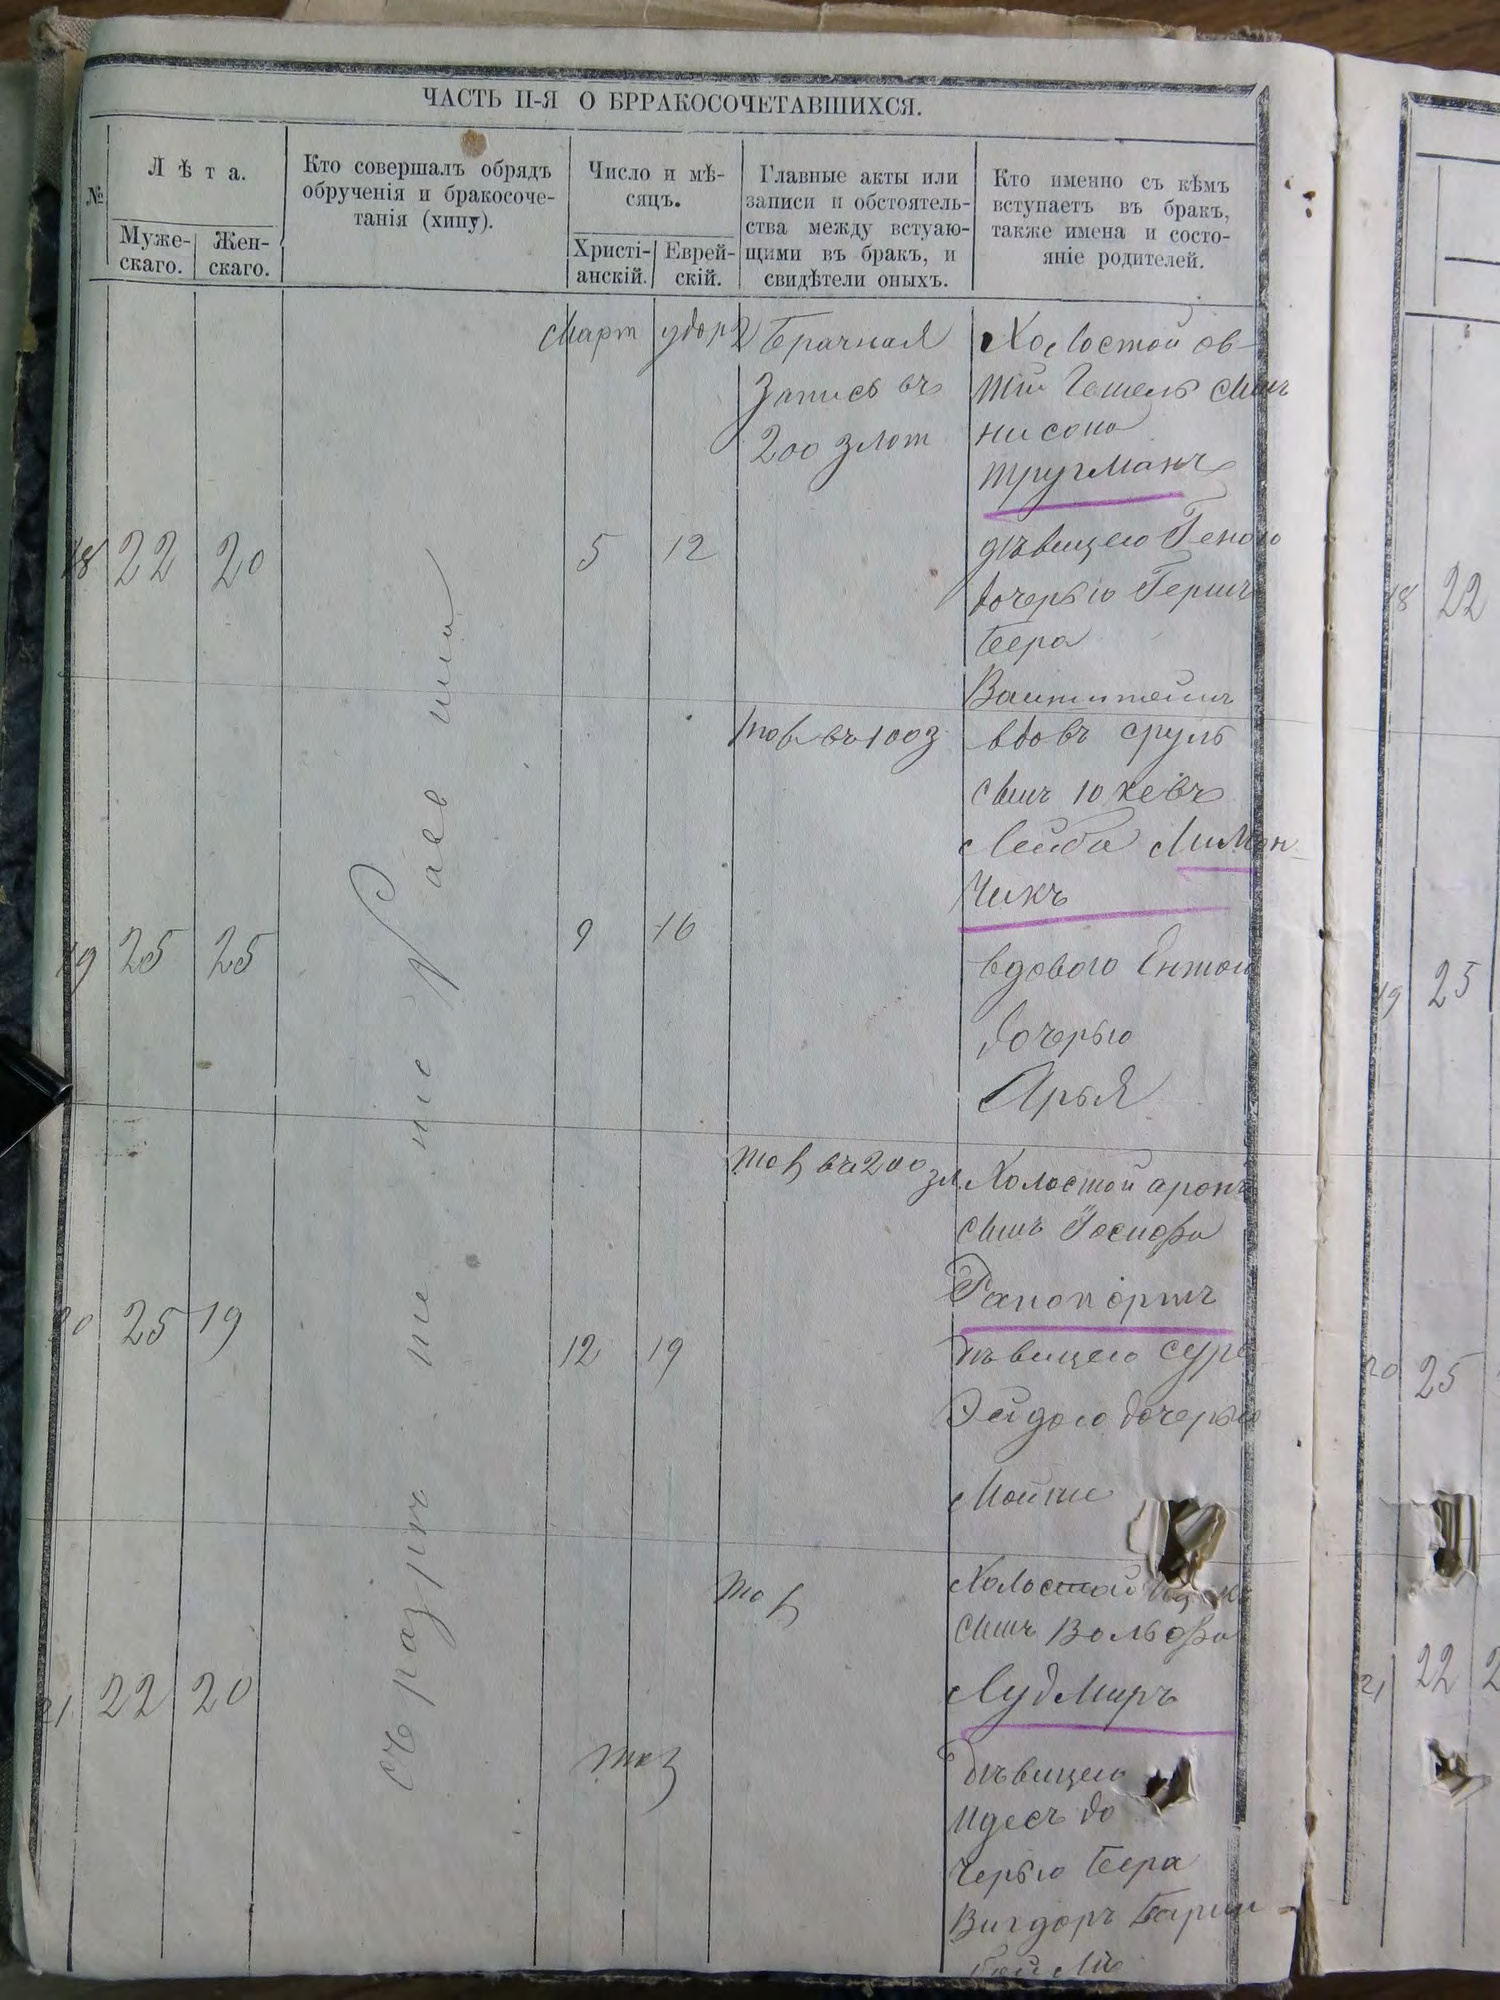 ЧАСТЬ II-Я О БРРАКОСОЧЕТАВШИХСЯ.
№
Лѣта.
Муже-
скаго.
Жен-
скаго.
Кто совершалъ обрядъ
обрученія и бракосоче-
танія (хипу).
Число и мѣ-
сяцъ.
Христі-
анскій.
Еврей-
скій.
Главные акты или
записи и обстоятель-
ства между встуаю-
щими въ бракъ, и
свидѣтели оныхъ.
Кто именно съ кѣмъ
вступаетъ въ бракъ,
также имена и состо-
яніе родителей.
Мартъ
Брачная
Запись въ
200 злот
18 22 20
5 12
Холостой
сынъ
Нисона
Тругманъ
дѣвицею Геною
дочерью Герша
Бера
Ваинштейнъ
19 25 25
9 16
тоже въ 100 з
вдовъ Сруль
сынъ Іохевъ
Лейба Лимон-
чикъ
вдовою Ентою
дочерью
Арья
20 25 19
12 19
тоже въ 200 зл
Холостой Аронъ
сынъ Іосифа
Рапопортъ
дѣвицею Сура
Эйдою дочерью
Мойше
21 22 20
тож
тож
Холостой
сынъ Вольфа
Лудмиръ
дѣвицею
Идесъ до
черью Бера
Вигдоръ
съ разрѣшенія Раввина
18 22
19 25
20 25
21 22 2